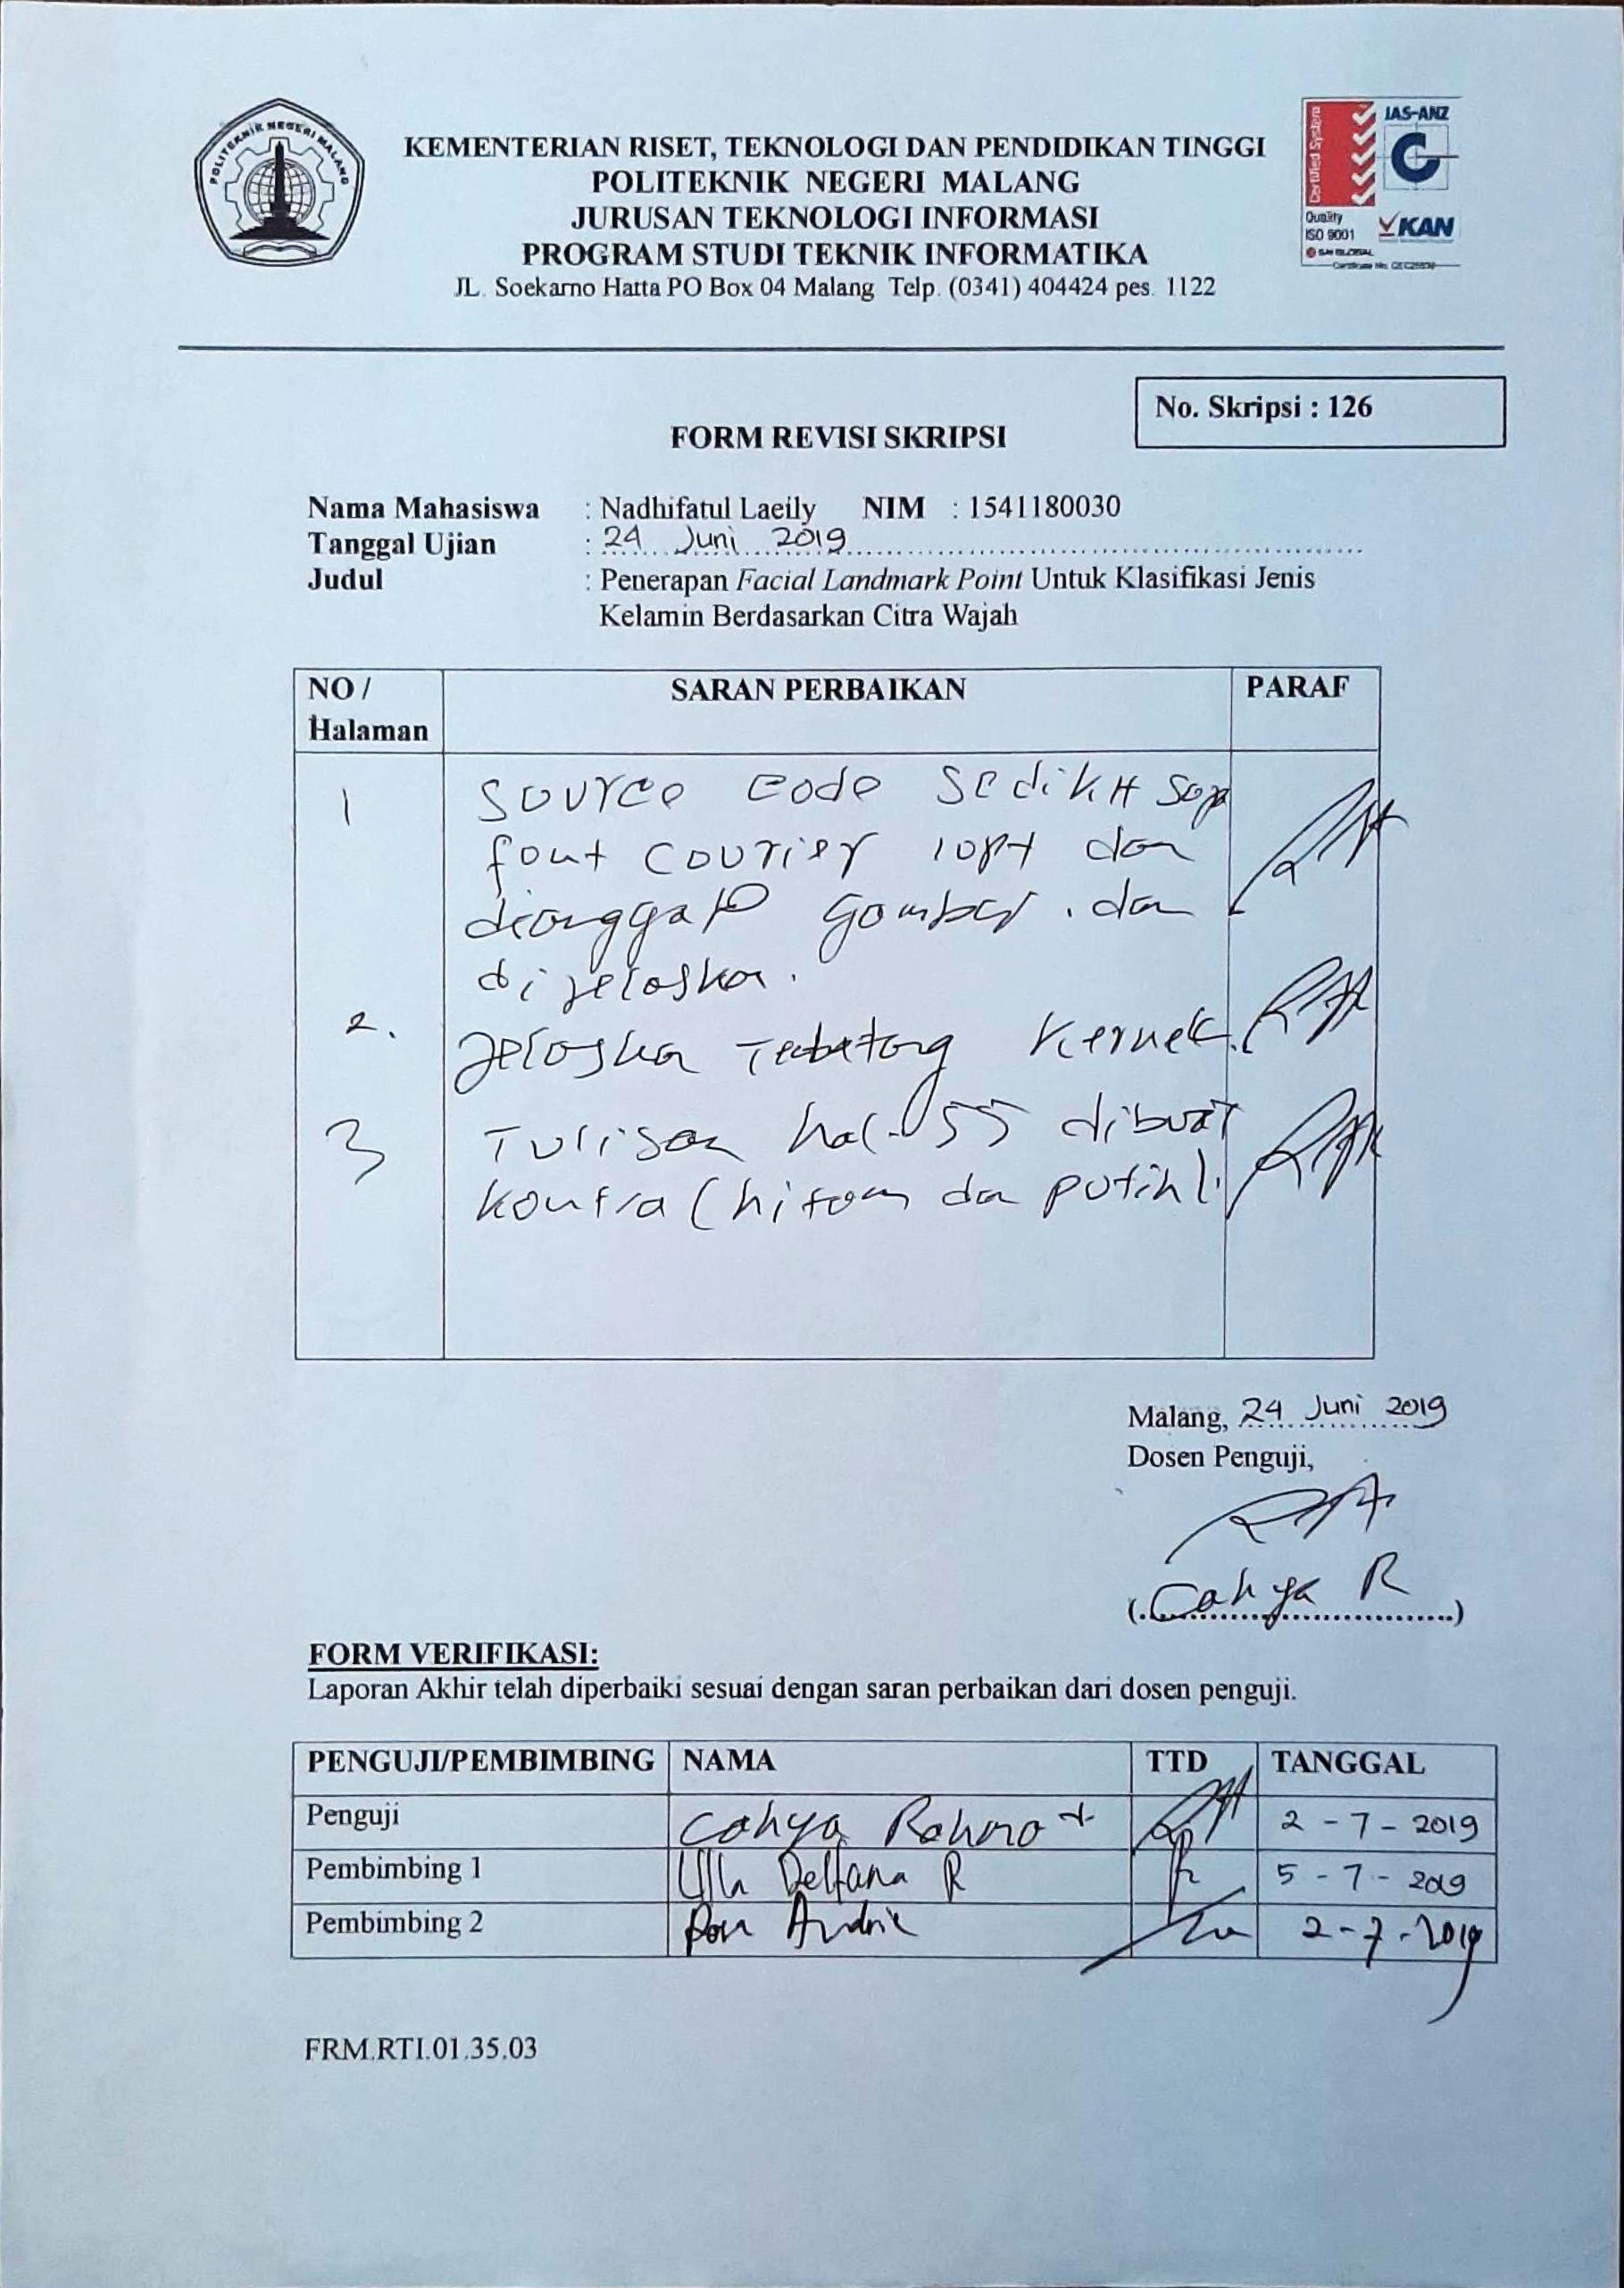 POLITEKNIK NEGERI MALANG
KEMENTERIAN RISET, TEKNOLOGI DAN PENDIDIKAN TINGGI
POLITEKNIK NEGERI MALANG
JURUSAN TEKNOLOGI INFORMASI
PROGRAM STUDI TEKNIK INFORMATIKA
JL. Soekarno Hatta PO Box 04 Malang Telp. (0341) 404424 pes. 1122
Certified System
JAS-ANZ
Quality
ISO 9001
KAN
SAI GLOBAL
No. Skripsi : 126
FORM REVISI SKRIPSI
Nama Mahasiswa : Nadhifatul Laeily NIM : 1541180030
Tanggal Ujian : 24 Juni 2019
Judul : Penerapan Facial Landmark Point Untuk Klasifikasi Jenis
Kelamin Berdasarkan Citra Wajah
NO / SARAN PERBAIKAN PARAF
Halaman
1 Source code sedikit saja
font courier 10pt dan
dianggap gambar. dan
dijelaskan.
2. Jelaskan tentang Kernel.
3 Tulisan hal. 55 dibuat
(hitam dan putih).
Malang, 24 Juni 2019
Dosen Penguji,
(Cahya R)
FORM VERIFIKASI:
Laporan Akhir telah diperbaiki sesuai dengan saran perbaikan dari dosen penguji.
PENGUJI/PEMBIMBING NAMA TTD TANGGAL
Penguji Cahya Rahmat 2 - 7 - 2019
Pembimbing 1 Ulla Delfana R 5 - 7 - 2019
Pembimbing 2 Andrie 2 - 7 - 2019
FRM.RTI.01.35.03